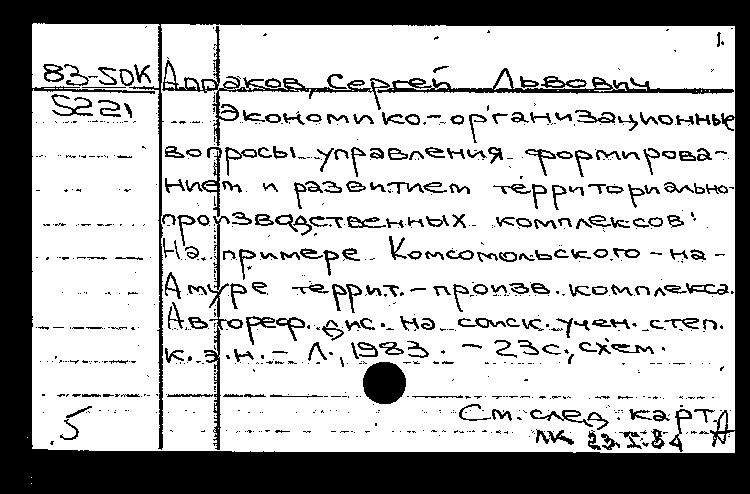 1.
83-50К Апраков, Сергей Львович
5221 Экономико-организационные
вопросы управления формирова-
нием и развитием территориально-
производственных комплексов:
На примере Комсомольского-на-
Амуре террит.-произв. комплекса.
Автореф. дис. на соиск. учен. степ.
к.э.н. - Л., 1983. - 23с., схем.
См. след. карт.
5 ЛК 23.I.84 А